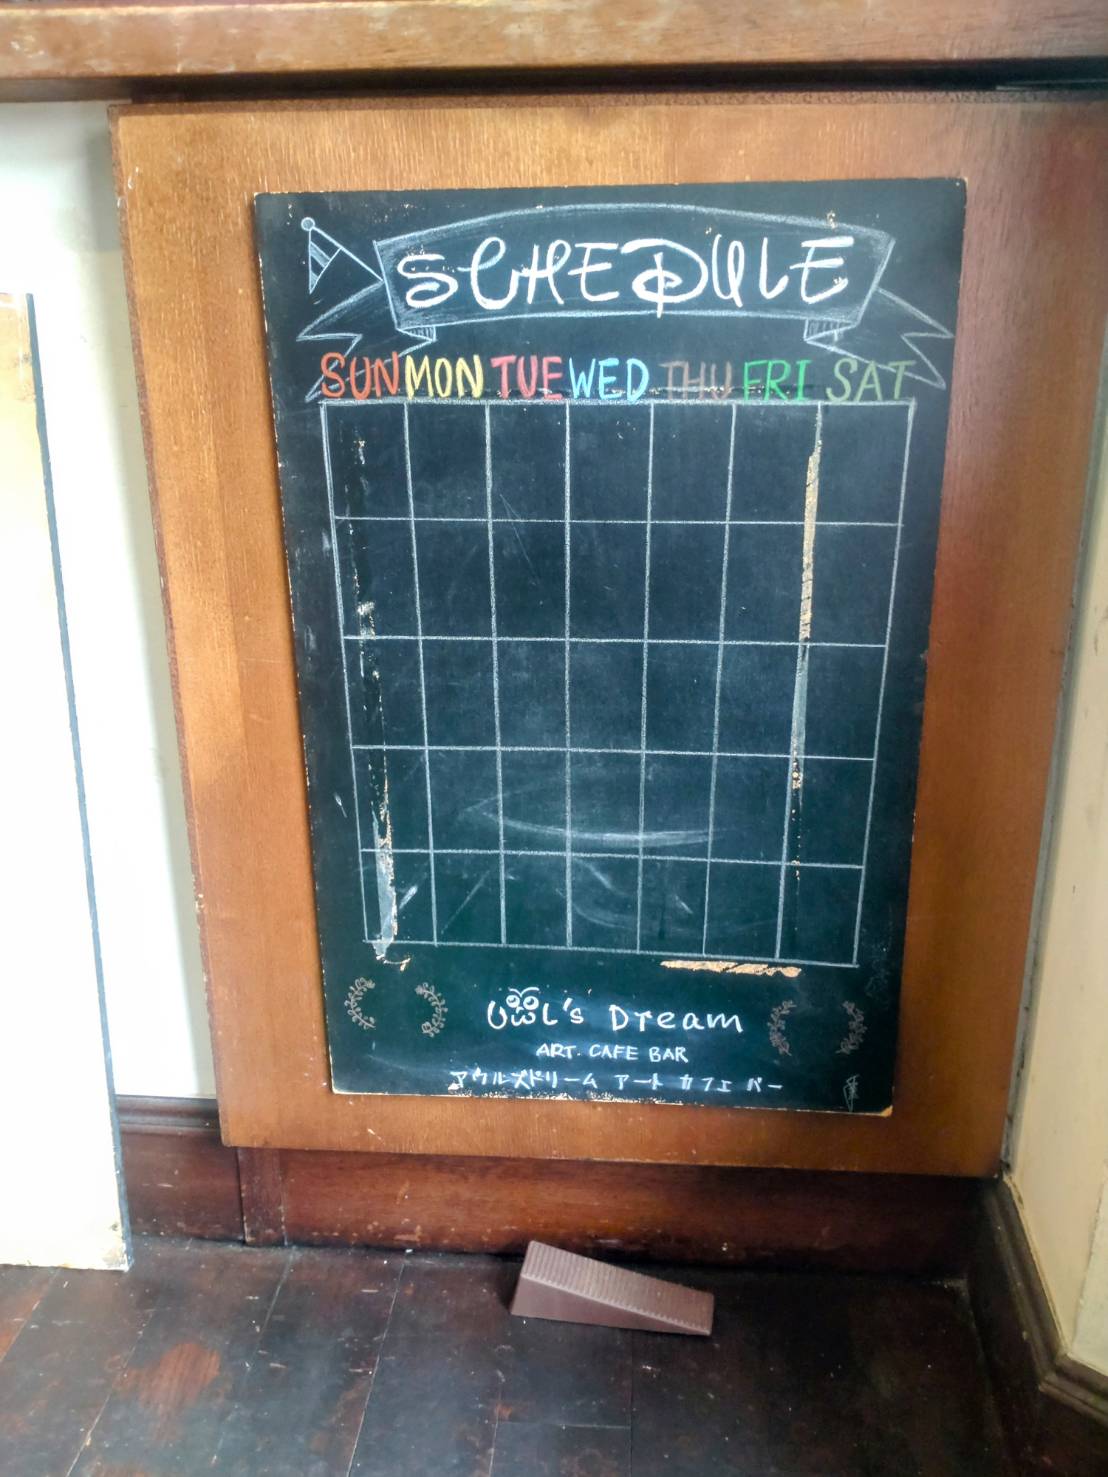 SCHEDULE
SUN MON TUE WED THU FRI SAT
Owl's Dream
ART. CAFE BAR
アウルズドリーム アート カフェ バー